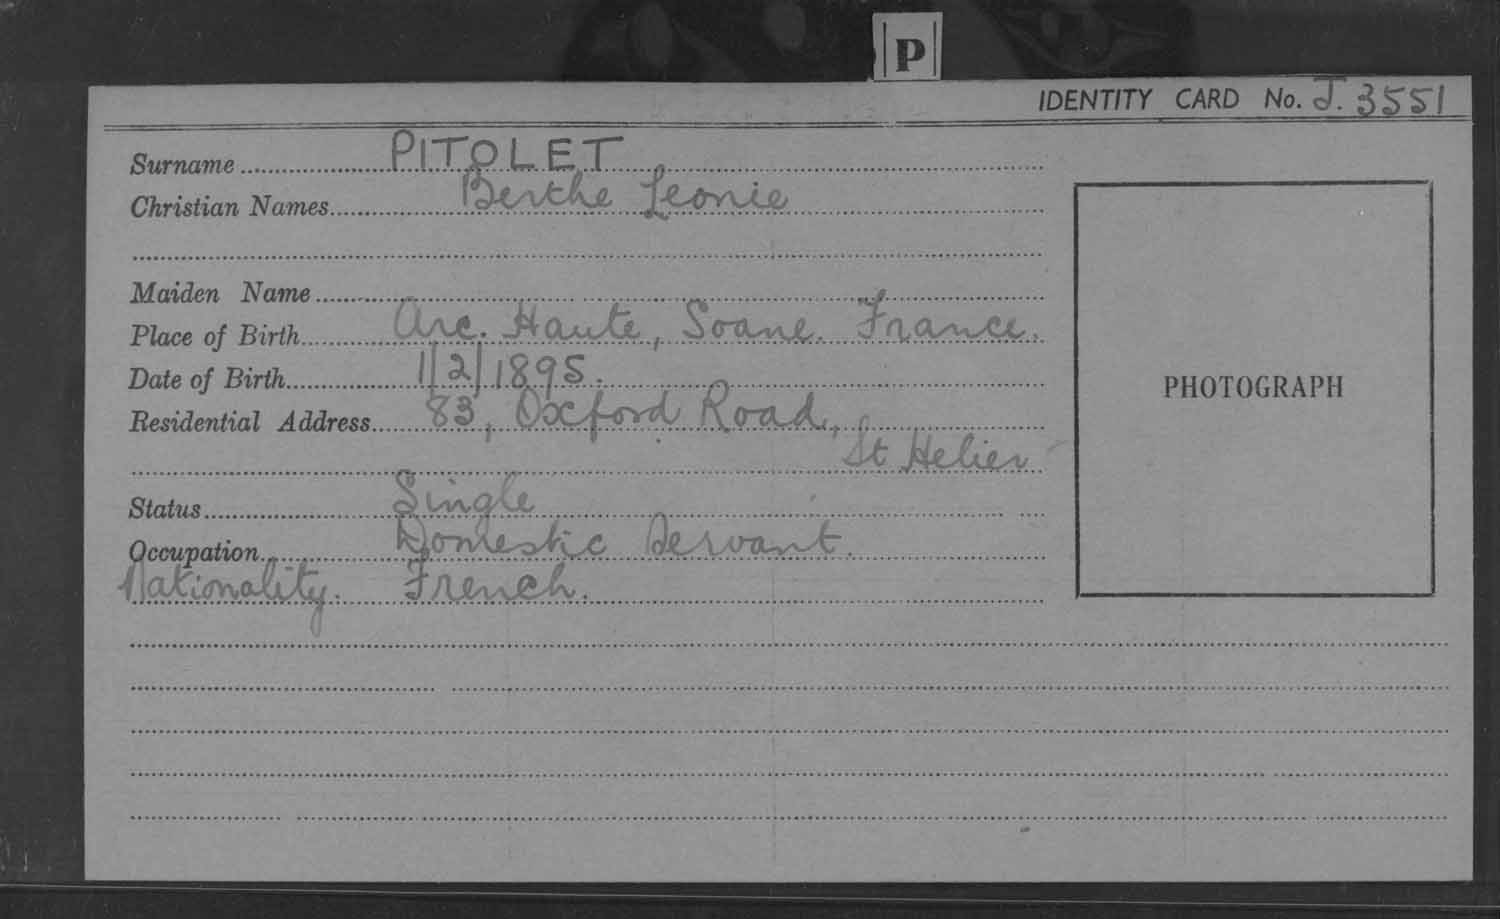 P
IDENTITY CARD No. J. 3551
Surname PITOLET
Christian Names Berthe Leonie
Maiden Name
Place of Birth Arc. Haute, Soane. France.
Date of Birth 1/2/1895.
Residential Address 83, Oxford Road,
St Helier
Status Single
Occupation Domestic Servant.
Nationality. French.
PHOTOGRAPH